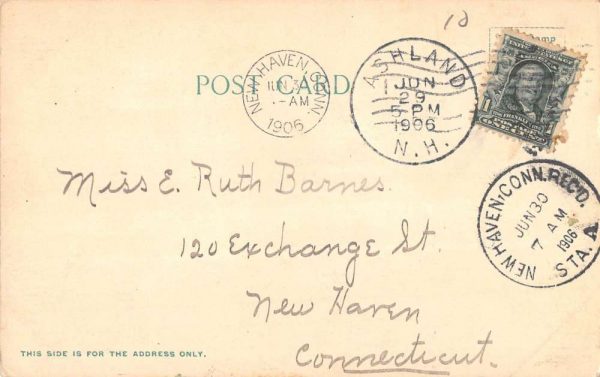 10
POST CARD
NEW HAVEN, CONN.
JUN 3
-AM
1906
ASHLAND
JUN
29
5 PM
1906
N.H.
1
NEW HAVEN, CONN. REC'D.
JUN 30
7 AM
1906
STA. A
Miss E. Ruth Barnes.
120 Exchange St.
New Haven
Connecticut.
THIS SIDE IS FOR THE ADDRESS ONLY.